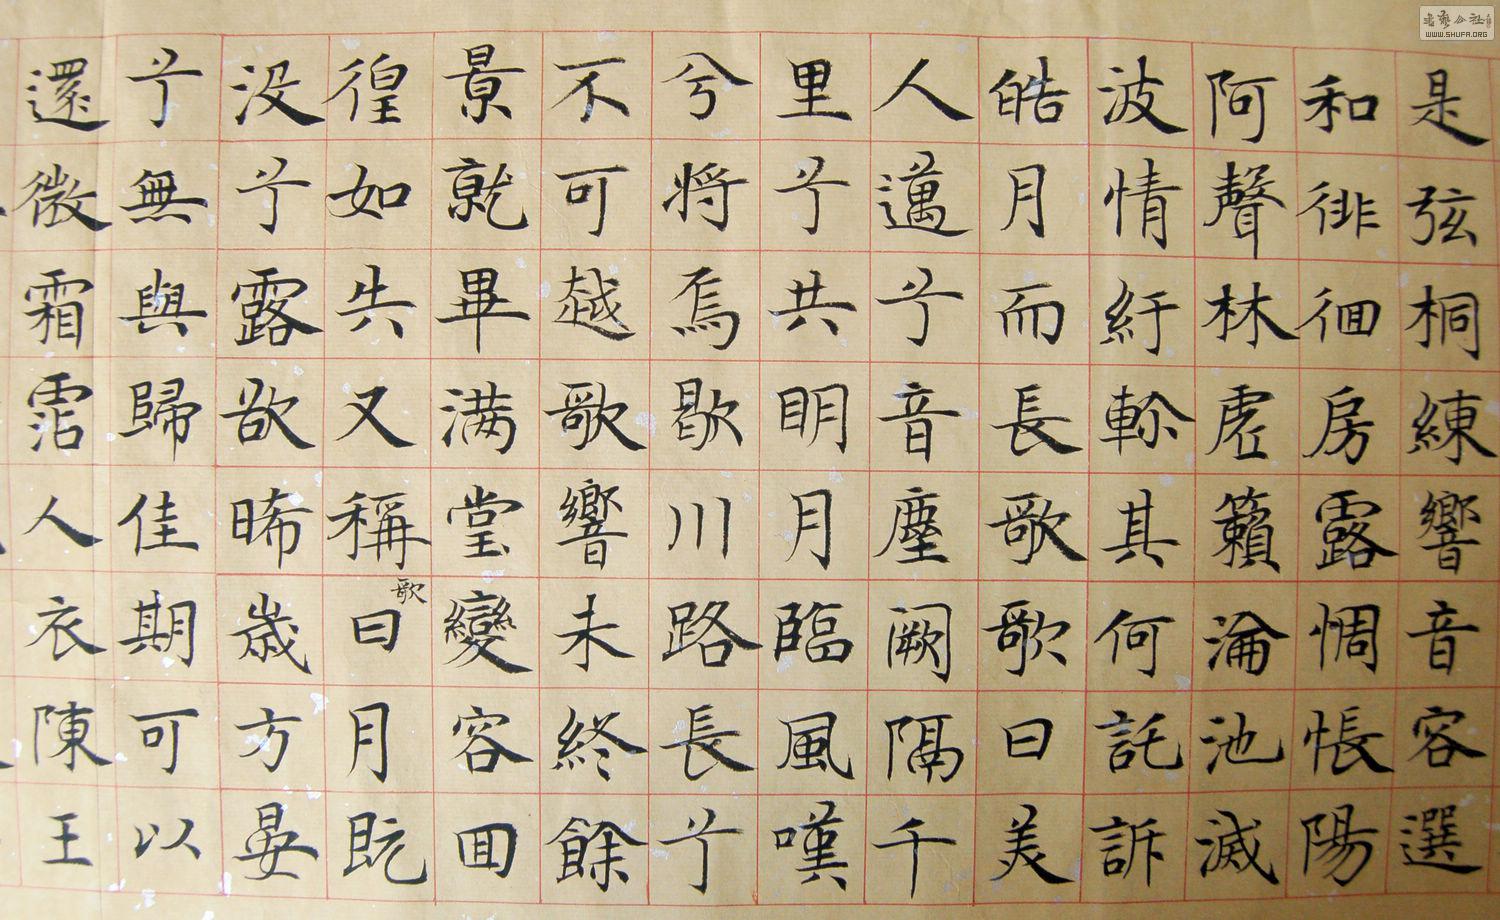 是弦桐練響音容選
和徘徊房露惆悵陽
阿聲林虛籟淪池滅
波情紆軫其何託訴
皓月而長歌歌曰美
人邁兮音塵闕隔千
里兮共明月臨風嘆
兮将焉歇川路長兮
不可越歌響未終餘
景就畢满堂變容回
徨如失又稱歌曰月既
没兮露欲晞歲方晏
兮無與歸佳期可以
還微霜霑人衣陳王
WWW.SHUFA.ORG